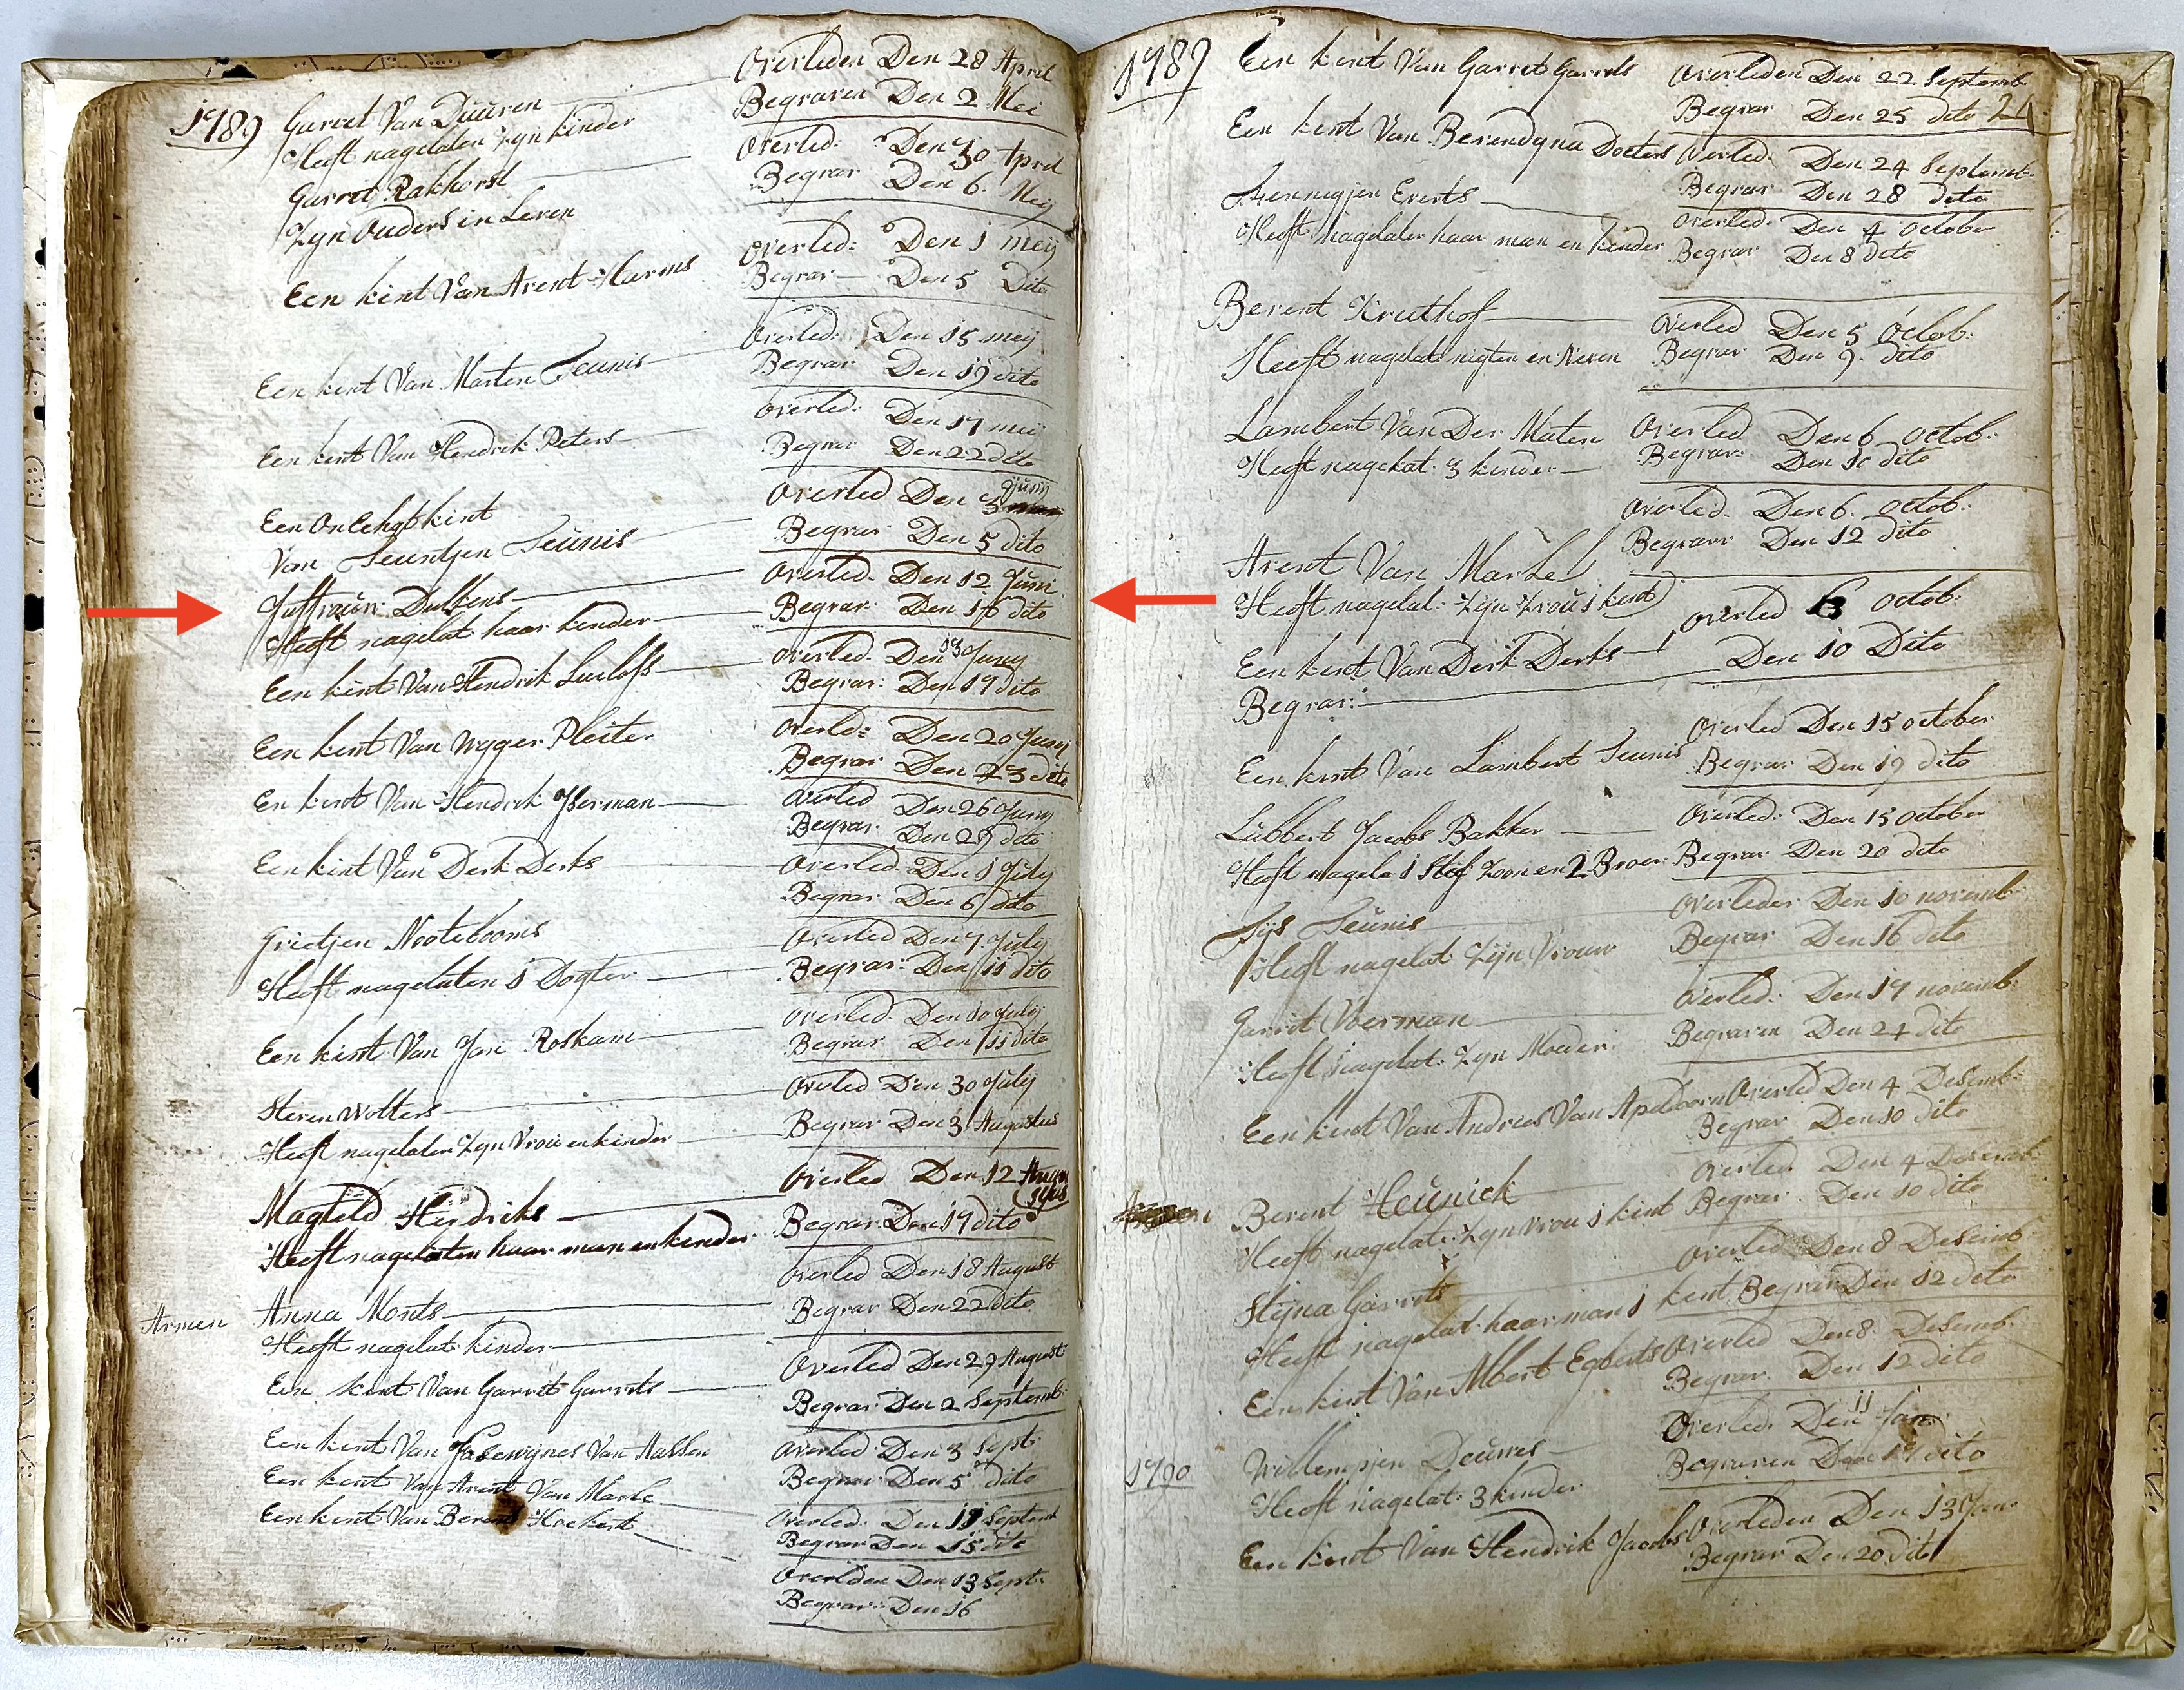 1789 Garret Van Duuren Overleden Den 28 April
Heeft nagelaten zyn kinder Begraven Den 2 Mei
Garrit Rakhorst Overled: Den 30 April
Zyn Ouders in Leven Begrav Den 6. Meij
Een kint Van Arent Harms Overled: Den 1 meij
Begrav Den 5 Dito
Een kint Van Marten Teunis Overled: Den 15 meij
Begrav Den 19 dito
Een kint Van Hendrik Peters Overled: Den 17 meij
Begrav Den 22 dito
Een On Echgt kint Overled Den 3 Junij
Van Teuntjen Teunis Begrav Den 5 dito
Juffrouw Dulkens Overled. Den 12 Juni
Heeft nagelat: haar kinder Begrav: Den 16 dito
Een kint Van Hendrik Luclofs Overled. Den 13 Juny
Begrav: Den 17 dito
Een kint Van Wyger Pleiter Overled: Den 20 Junij
Begrav Den 23 dito
En kint Van Hendrik Ysserman Overled Den 26 Juny
Begrav: Den 29 dito
Een kint Van Derk Derks Overled. Den 1 July
Begrav Den 6 dito
Grietjen Nootebooms Overled Den 7 July
Heeft nagelaten 1 Dogter Begrav: Den 11 dito
Een kint Van Jan Roskam Overled. Den 10 July
Begrav Den 11 dito
Steven Wolters Overled Den 30 July
Heeft nagelaten Zyn Vrou en kinder Begrav Den 3 Augustus
Magteld Hendriks Overled Den 12 Augustus
Heeft nagelaten haar man en kinder Begrav: Den 17 dito
Overled Den 18 August
Armen Anna Monts Begrav Den 22 dito
Heeft nagelat: kinder
Een kint Van Garrit Garrits Overled Den 29 August
Begrav Den 2 Septemb:
Een kint Van Van Hassen Overled: Den 3 Sept:
Begrav Den 5 dito
Een kint Van Arent Van Marle Overled: Den 11 Septemb
Begrav Den 15 dito
Een kint Van Berent Hoekert Overlden Den 13 Sept:
Begrav: Den 16
1789 Een kint Van Garret Garrets Overleden Den 22 Septemb
Begrav Den 25 dito 21
Een kint Van Berendyna Docters Overled: Den 24 Septemb:
Begrav Den 28 dito
Hennigjen Everts Overled: Den 4 October
Heeft nagelaten haar man en kinder Begrav Den 8 dito
Berent Kruthof Overled Den 5 Octob:
Heeft nagelat: nigten en Neven Begrav Den 9. dito
Lambert Van Der Maten Overled Den 6 Octob:
Heeft nagelat: 3 kinder Begrav: Den 10 dito
Overled. Den 6. Octob:
Arent Van Markel Begrav Den 12 dito
Heeft nagelat: Zyn Vrou 1 kint
Een kint Van Derk Derks Overled 6 Octob:
Begrav: Den 10 Dito
Een kint Van Lambert Teunis Overled Den 15 October
Begrav Den 19 dito
Lubbert Jacobs Bakker Overled: Den 15 October
Heeft nagela 1 Stif Zoon en 2 Broer: Begrav Den 20 dito
Tijs Teunis Overleden Den 10 novemb:
Heeft nagelat Zyn Vrouw Begrav Den 16 dito
Garrit Voerman Overled: Den 17 novemb:
Heeft nagelat: Zyn Moeder Begraven Den 24 dito
Een kint Van Andries Van Apeldoorn Overled Den 4 Desemb:
Begrav Den 10 dito
Berent Heunick Overled. Den 4 Desemb:
Heeft nagelat: Zyn vrou 1 kint Begrav. Den 10 dito
Stijna Garrits Overled Den 8 Desemb
Heeft nagelat: haar man 1 kint Begrav Den 12 dito
Een kint Van Albert Egberts Overled Den 8 Desemb:
Begrav Den 12 dito
1790 Willempjen Deuvres Overled. Den 11 Jan:
Heeft nagelat: 3 kinder Begraven Den 17 dito
Een kint Van Hendrik Jacobs Overleden Den 13 Jan:
Begrav Den 20 dito